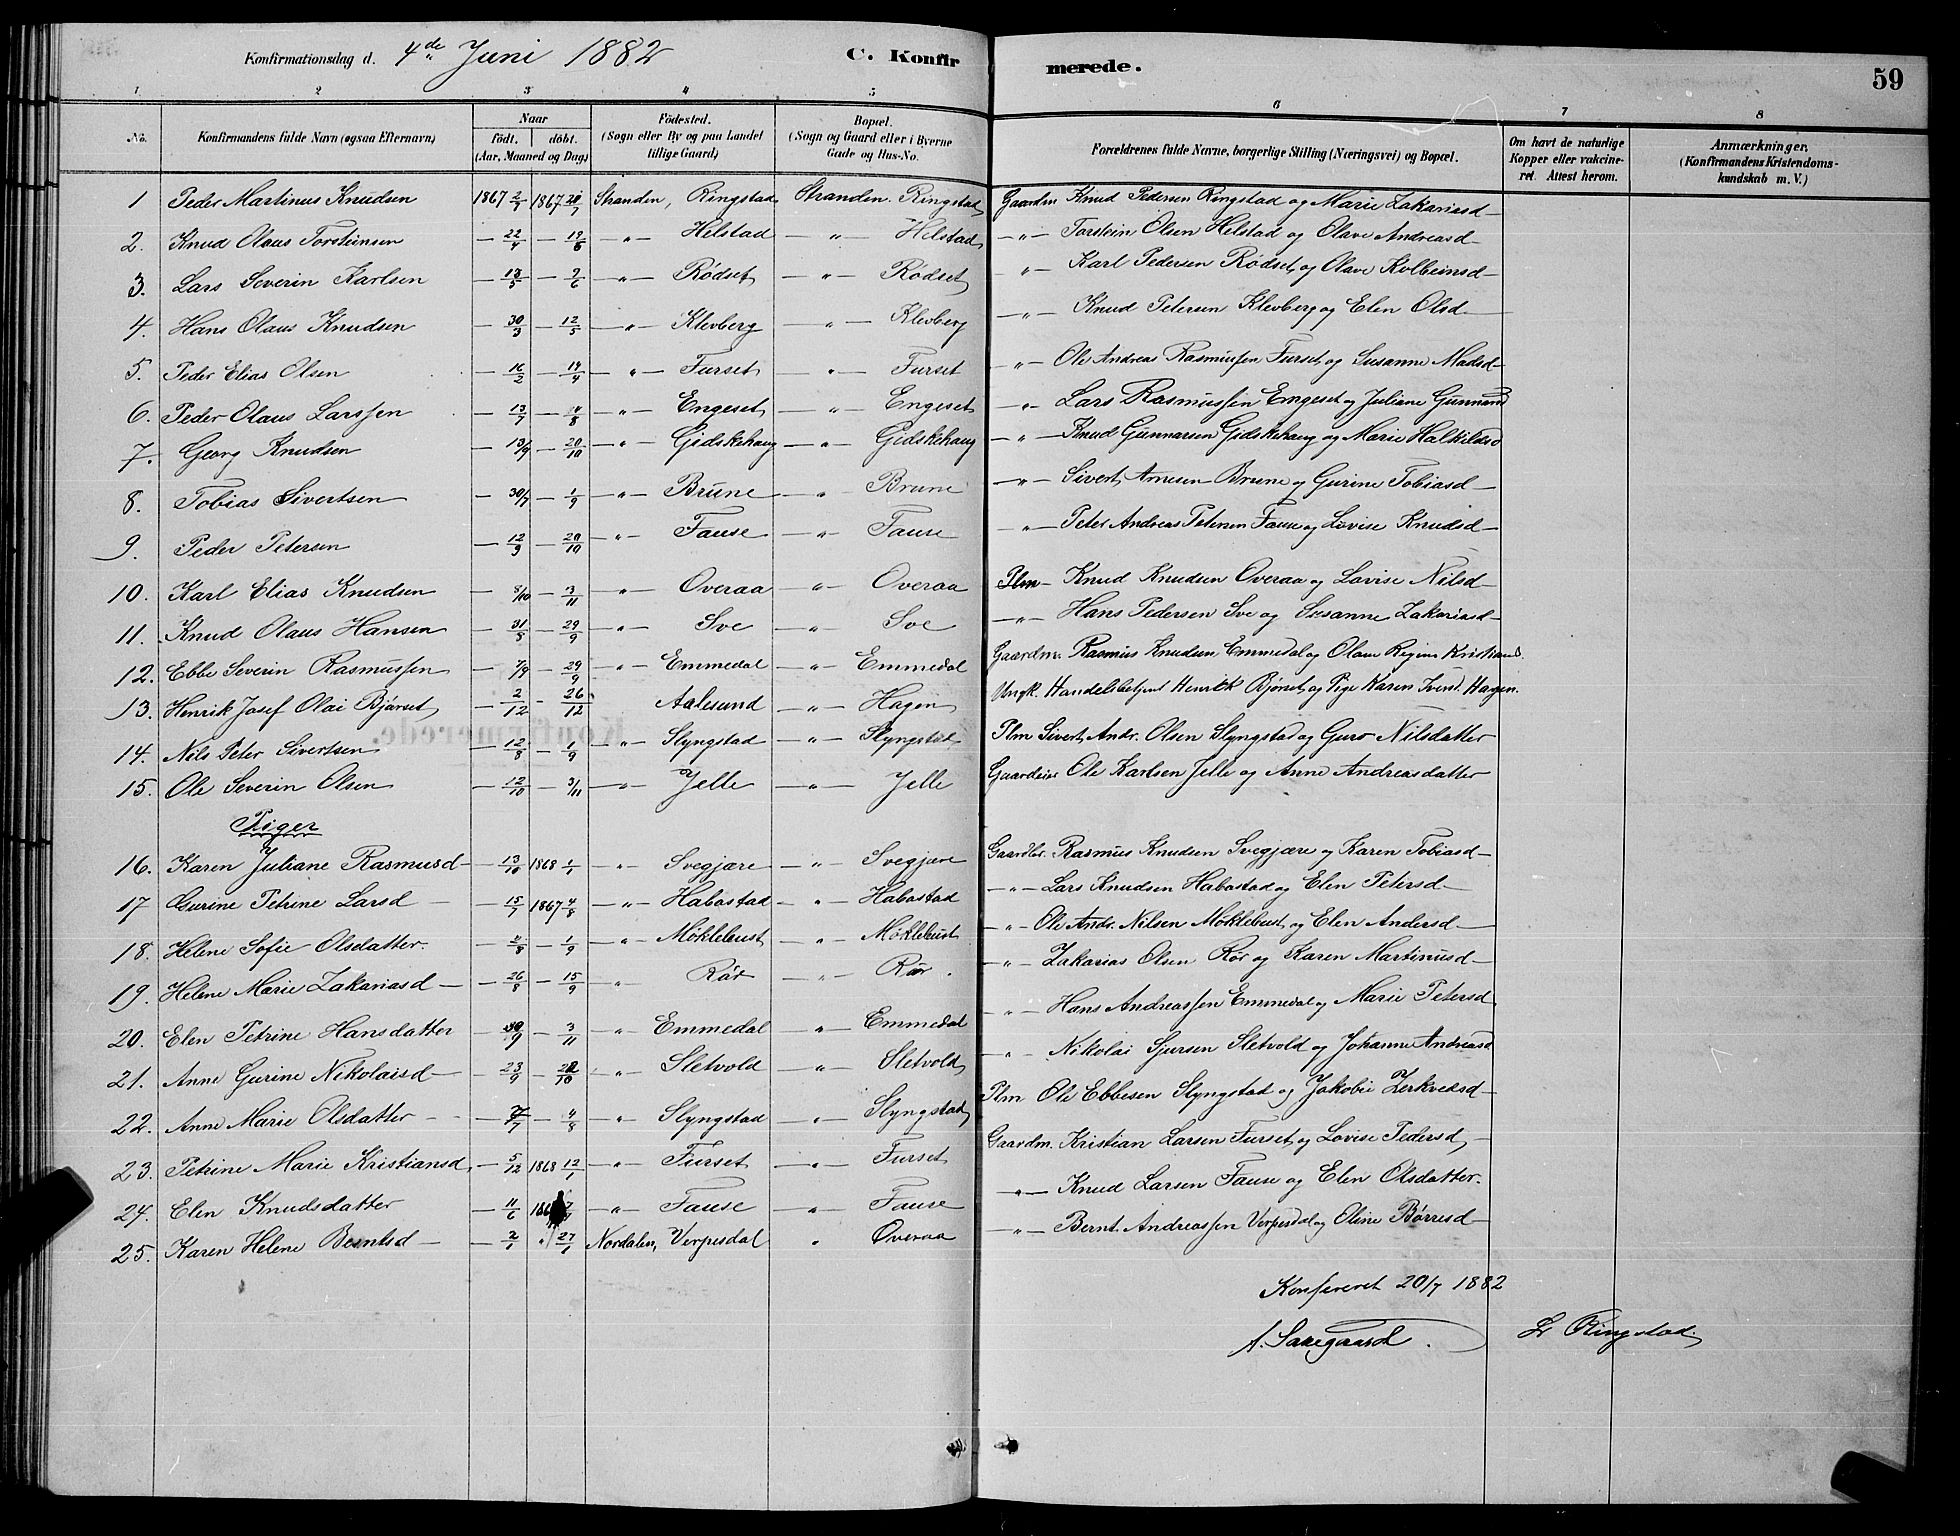 Konfirmationsdag d. 4de Juni 1882 C. Konfirmerede. 59
1 2 3 4 5 6 7 8
No. Konfirmandens fulde Navn (ogsaa Efternavn) Naar födt. döbt. (Aar, Maaned og Dag) Födested. (Sogn eller By og paa Landet tillige Gaard) Bopæl. (Sogn og Gaard eller i Byerne Gade og Hus-No. Forældrenes fulde Navne, borgerlige Stilling (Næringsvei) og Bopæl. Om havt de naturlige Kopper eller vakcineret. Attest herom. Anmærkninger. (Konfirmandens Kristendomskundskab m. V.)
1 Peder Martinus Knudsen 1867 2/7 1867 20/7 Stranden, Ringstad Stranden. Ringstad Gaardm Knud Pedersen Ringstad og Marie Zakariasd
2. Knud Olaus Torsteinsen — 22/4 — 19/6 — " — Helstad — " — Helstad — " — Torstein Olsen Helstad og Olave Andreasd
3. Lars Severin Karlsen — 13/5 — 2/6 — " — Rødset — " — Rødset — " — Karl Pedersen Rødset og Olave Kolbeinsd
4. Hans Olaus Knudsen — 30/3 — 12/5 — " — Klevberg — " — Klevberg — " — Knud Petersen Klevberg og Elen Olsd
5. Peder Elias Olsen — 16/2 — 14/4 — " — Furset — " — Furset — " — Ole Andreas Rasmussen Furset og Susanne Madsd
6. Peder Olaus Larssen — 13/7 — 4/8 — " — Engeset — " — Engeset — " — Lars Rasmussen Engeset og Juliane Gunnarsd
7. Georg Knudsen — 13/9 — 20/10 — " — Gidskehaug — " — Gidskehaug — " — Knud Gunnarsen Gidskehaug og Marie Halkildsd
8. Tobias Sivertsen — 30/7 — 1/9 — " — Brune — " — Brune — " — Sivert Arnesen Brune og Gurine Tobiasd
9. Peder Petersen — 12/9 — 20/10 — " — Fause — " — Fause — " — Peter Andreas Petersen Fause og Lovise Knudsd
10. Karl Elias Knudsen — 8/10 — 3/11 — " — Overaa — " — Overaa Plm — Knud Knudsen Overaa og Lovise Nilsd
11. Knud Olaus Hansen — 31/8 — 29/9 — " — Sve — " — Sve — " — Hans Pedersen Sve og Susanne Zakariasd
12. Ebbe Severin Rasmussen — 7/9 — 29/9 — " — Emmedal — " — Emmedal Gaardm. Rasmus Knudsen Emmedal og Olave Regine Kristiansd.
13. Henrik Josef Olai Bjørset — 2/12 — 26/12 Aalesund — " — Hagen Ungk. Handelsbetjent Henrik Bjørset og Pige Karen Iversd. Hagen.
14. Nils Peter Sivertsen — 12/8 — 1/9 — " — Slyngstad — " — Slyngstad Plm Sivert Andr. Olsen Slyngstad og Guro Nilsdatter
15. Ole Severin Olsen — 12/10 — 3/11 — " — Jelle — " — Jelle Gaardeier Ole Karlsen Jelle og Anne Andreasdatter
Piger
16. Karen Juliane Rasmusd — 13/10 1868 1/1 — " — Svegjære — " — Svegjære Gaardbr. Rasmus Knudsen Svegjære og Karen Tobiasd
17 Gurine Petrine Larsd — 15/7 1867 4/8 — " — Habostad — " — Habostad — " — Lars Knudsen Habostad og Elen Petersd
18. Helene Sofie Olsdatter — 11/8 — 1/9 — " — Møklebust — " — Møklebust — " — Ole Andr. Nilsen Møklebust og Elen Andersd
19. Helene Marie Zakariasd — 26/8 — 15/9 — " — Rør — " — Rør. — " — Zakarias Olsen Rør og Karen Martinusd
20. Elen Petrine Hansdatter — 30/9 — 3/11 — " — Emmedal — " — Emmedal — " — Hans Andreassen Emmedal og Marie Petersd
21. Anne Gurine Nikolaisd — 23/9 — 20/10 — " — Sletvold — " — Sletvold — " — Nikolai Sjursen Sletvold og Johanne Andreasd
22. Anne Marie Olsdatter — 7/7 — 4/8 — " — Slyngstad — " — Slyngstad Plm Ole Ebbesen Slyngstad og Jakobie
23. Petrine Marie Kristiansd — 5/12 1868 12/1 — " — Furset — " — Furset Gaardm. Kristian Larsen Furset og Lovise Pedersd
24. Elen Knudsdatter — 11/6 — " — Fause — " — Fause — " — Knud Larsen Fause og Elen Olsdatter.
25. Karen Helene Berntsd — 2/1 " 27/1 Nordalen, Verpesdal " Overaa — " — Bernt Andreassen Verpesdal og Oline Børresd
Konfereret 20/7 1882
A. Saxegaard. L Ringstad